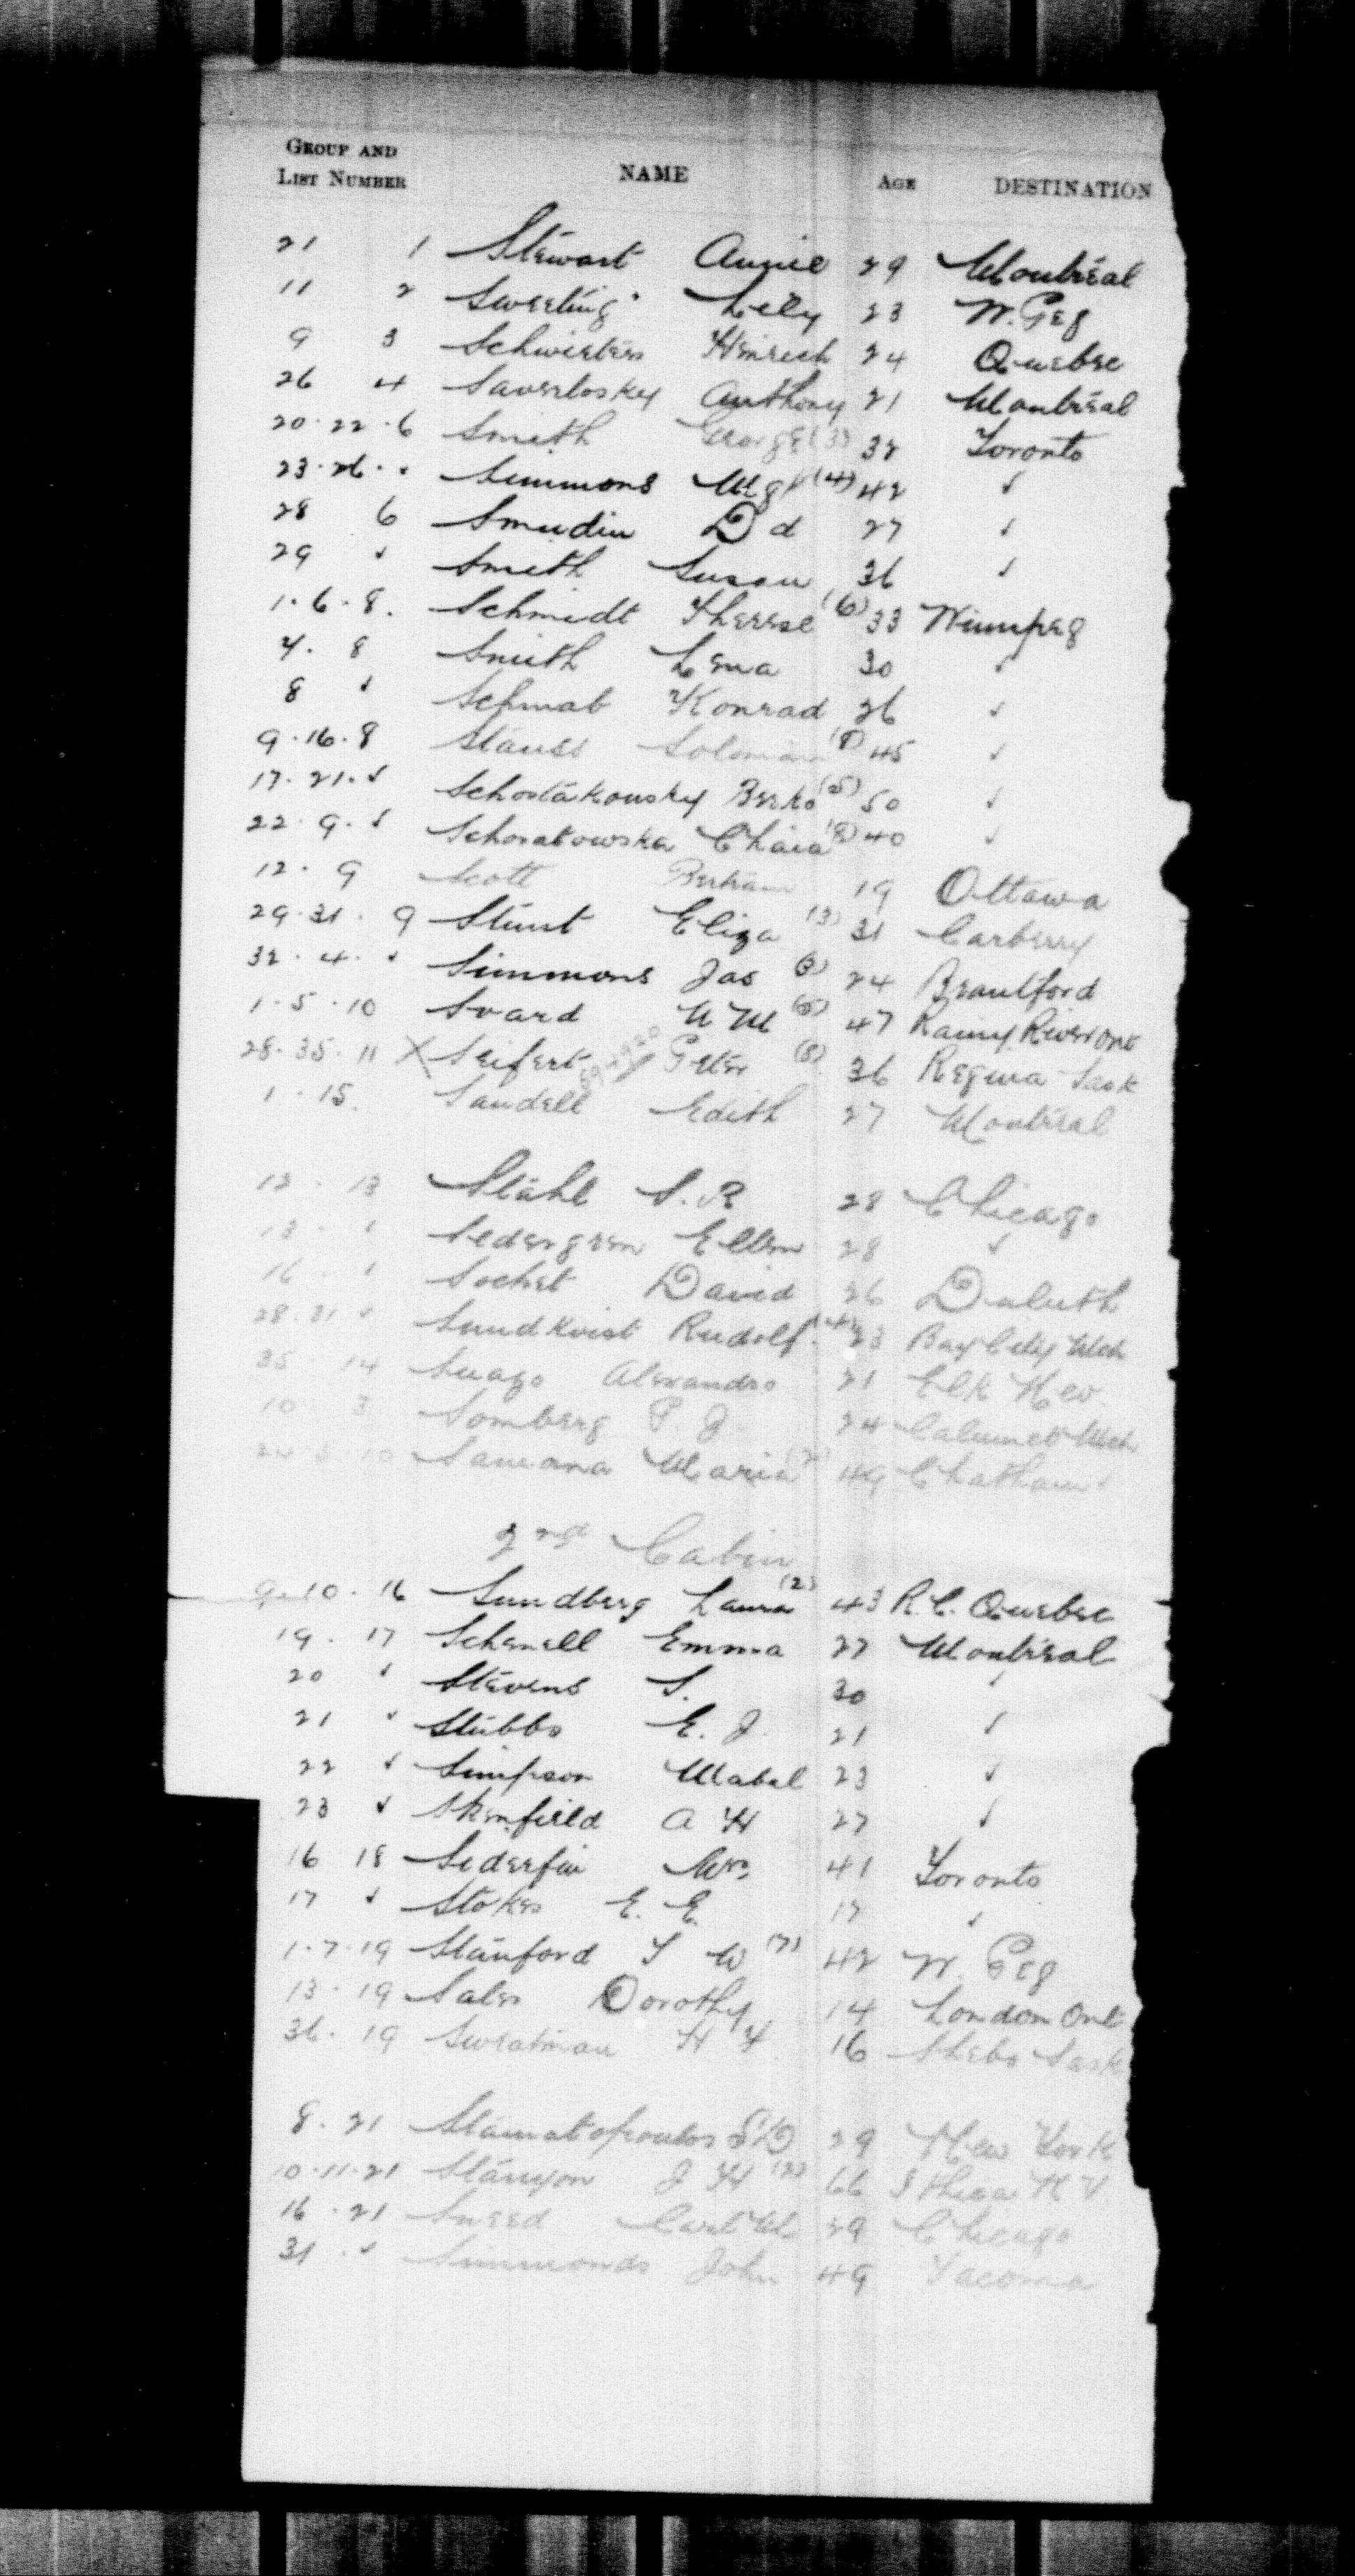 GROUP AND
LIST NUMBER NAME AGE DESTINATION
21 1 Stewart Annie 29 Montreal
11 2 Sweeting Lily 23 W. Peg
9 3 Schwieters Hinrich 24 Quebec
26 4 Saverloskey Anthony 21 Montreal
20-22-6 Smith George (3) 32 Toronto
23-26 - " Simmons Mgt (4) 42 "
28 6 Smudin D d 27 "
29 " Smith Susan 36 "
1-6-8. Schmidt Therese (6) 33 Winnipeg
7-8 Smith Lena 30 "
8 " Schwab Konrad 26 "
9-16-8 Stauss Soloman (8) 45 "
17-21-" Schostakousky Berko (5) 50 "
22-9-" Schoratowska Chaia (8) 40 "
12-9 Scott Bertram 19 Ottawa
29-31-9 Stunt Eliza (3) 31 Carberry
32-4-" Simmons Jas (3) 24 Brantford
1-5-10 Svard W M (5) 47 Rainy River Ont
28-35-11 X Seifert Peter (8) 36 Regina Sask
1-15. Sandell Edith 27 Montreal
12-13 Stahl S. R 28 Chicago
13-" Sedergren Ellen 28 "
16-" Sochet David 26 Duluth
28-31 " Sundkvist Rudolf (4) 23 Bay City Mich
35 14 Suago Alexandro 21 Elk Nev.
10 3 Somberg P. J. 24 Calumet Mich
10 Samona Maria 49 Chatham
2nd Cabin
9-10-16 Sundberg Laura (2) 43 R.C. Quebec
19-17 Schenell Emma 27 Montreal
20 " Stevens S. 30 "
21 " Stubbs E. J. 21 "
22 " Simpson Mabel 23 "
23 " Skenfield A H 27 "
16 18 Sederfin Mrs 41 Toronto
17 " Stokes E. E. 17 "
1-7-19 Stanford T W (7) 42 W. Peg
13-19 Sales Dorothy 14 London Ont
36-19 Sweatman H Y 16 Sheho Sask
8-21 Stamatopoulos 29 New York
10-11-21 Stanyon J H (2) 66 Ithica N Y.
16-21 Sneed Carl M 29 Chicago
31-" Simmonds John 49 Tacoma